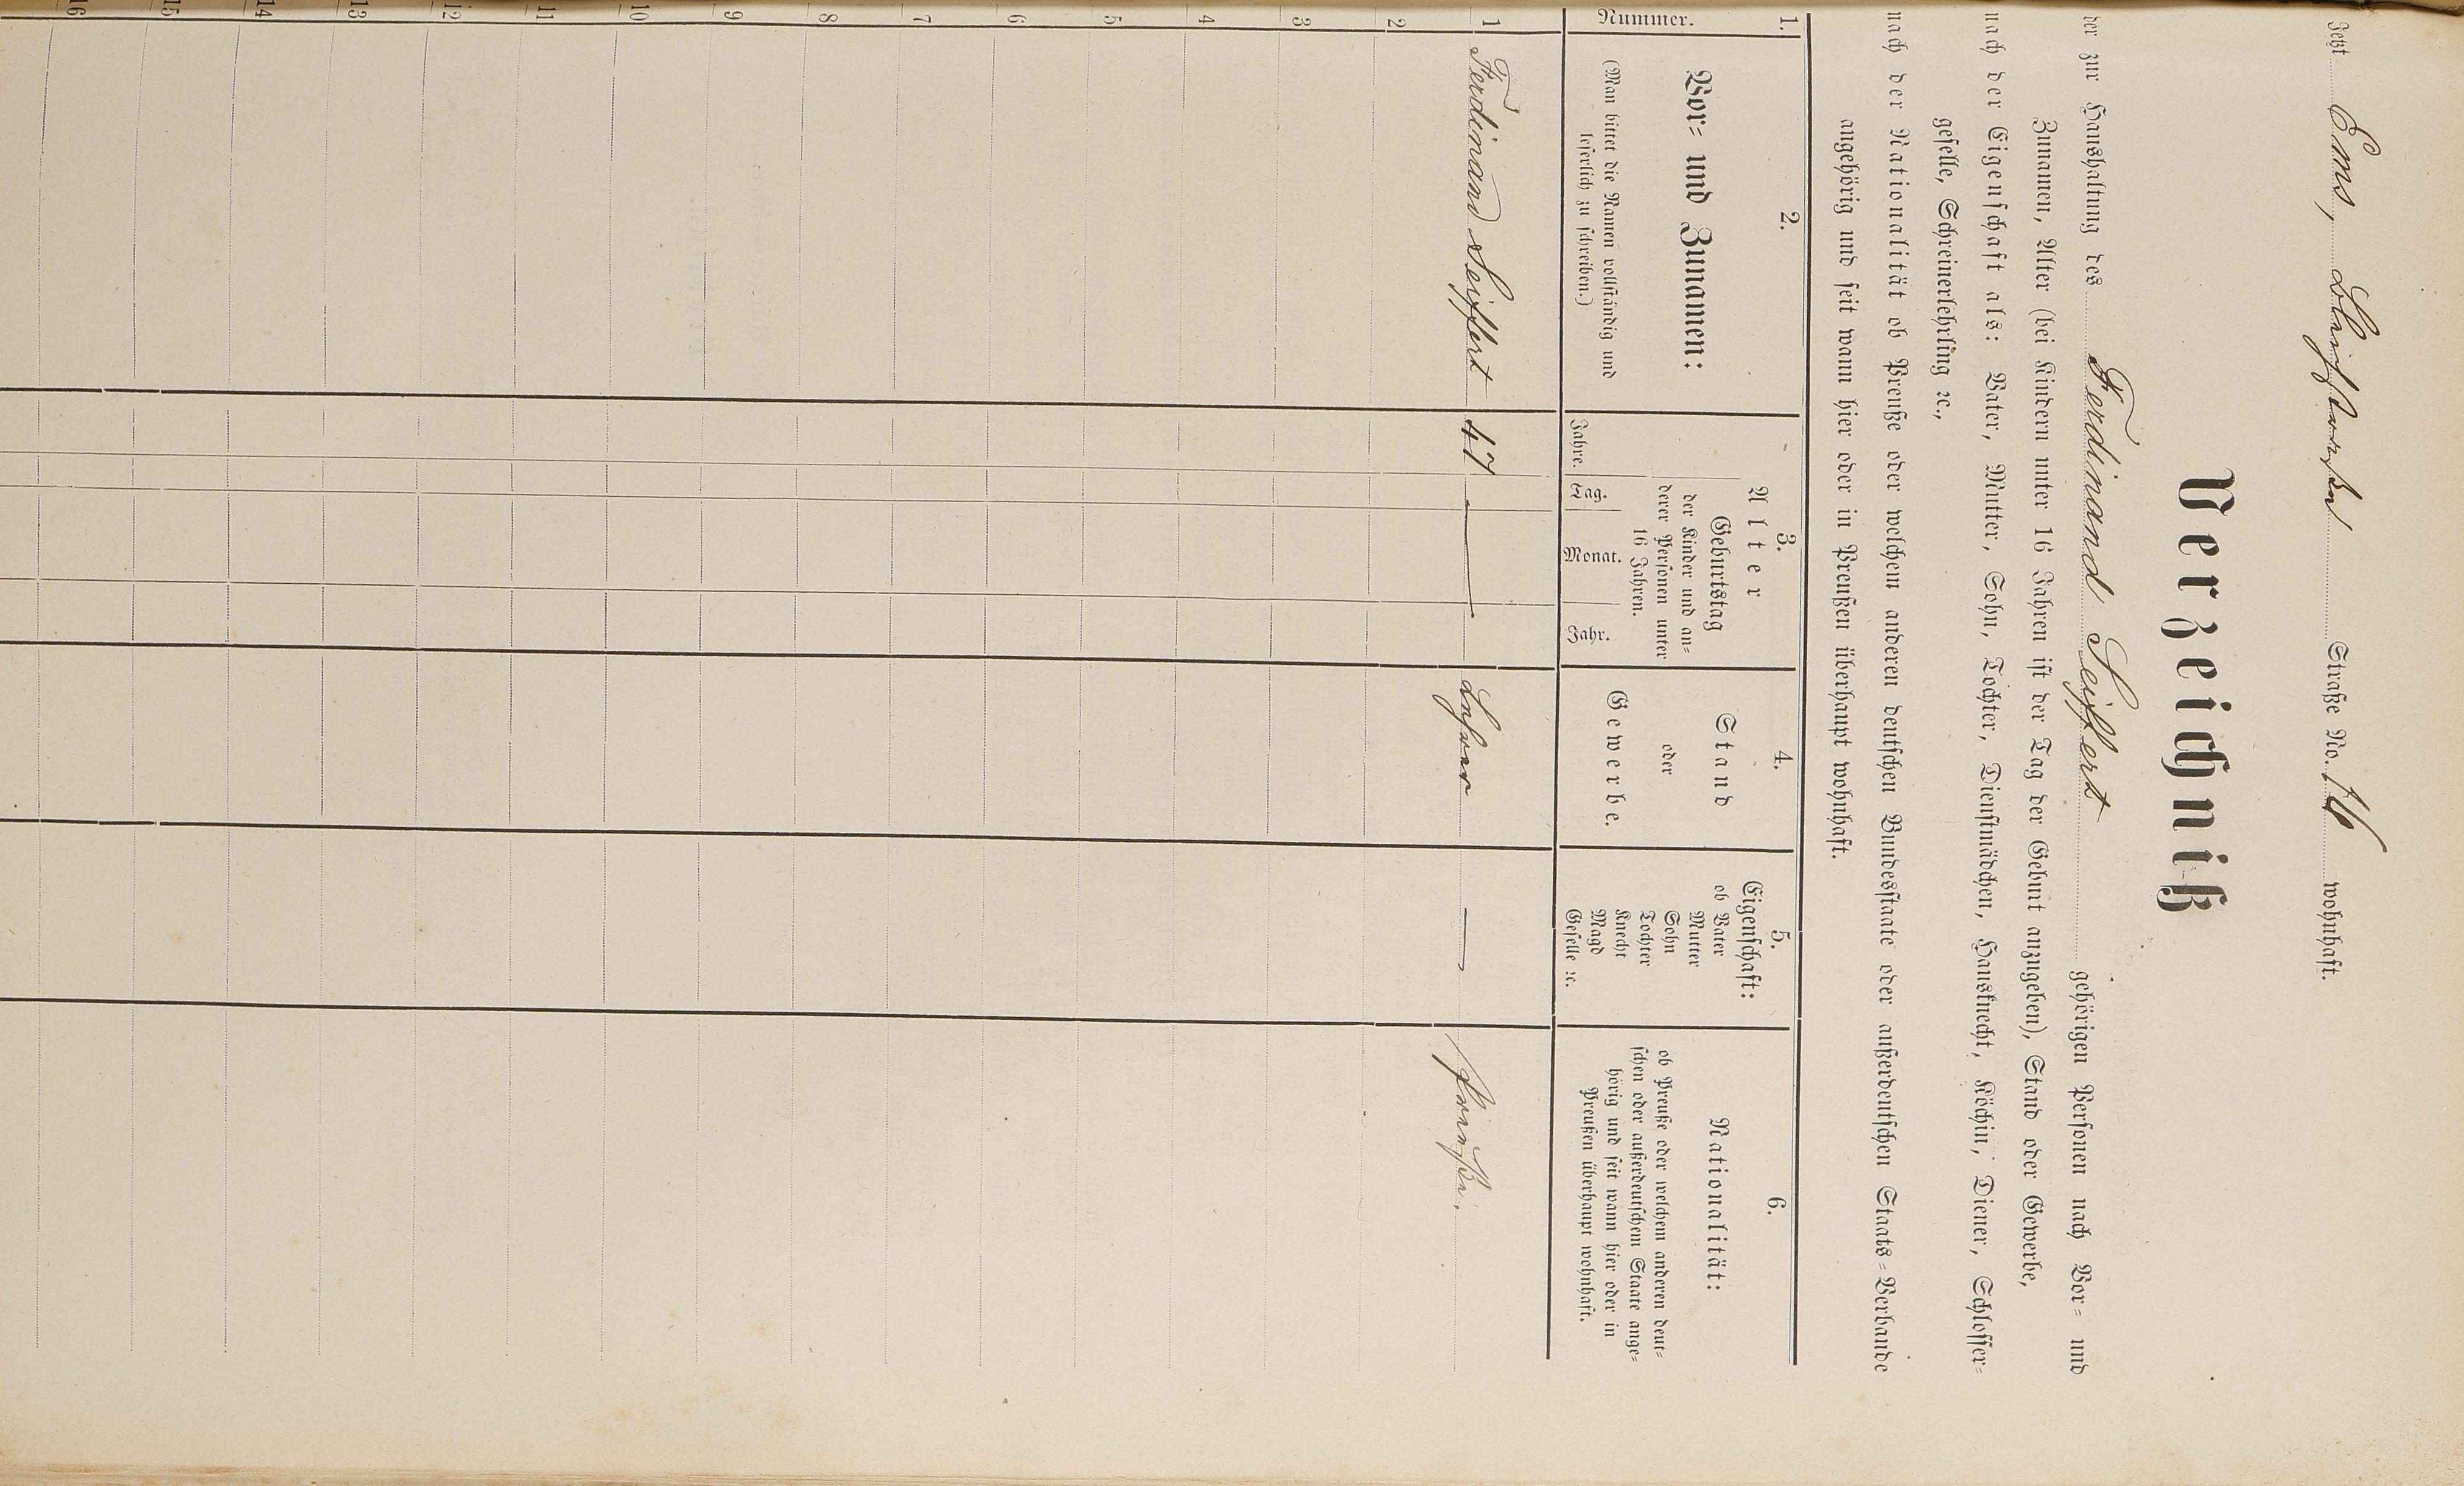 Jetzt Ems, Straße No. 16 wohnhaft.
Verzeichniß
der zur Haushaltung des Ferdinand Seiffert gehörigen Personen nach Vor- und
Zunamen, Alter (bei Kindern unter 16 Jahren ist der Tag der Geburt anzugeben), Stand oder Gewerbe,
nach der Eigenschaft als: Vater, Mutter, Sohn, Tochter, Dienstmädchen, Hausknecht, Köchin, Diener, Schlosser-
geselle, Schreinerlehrling ꝛc.,
nach der Nationalität ob Preuße oder welchem anderen deutschen Bundesstaate oder außerdeutschen Staats-Verbande
angehörig und seit wann hier oder in Preußen überhaupt wohnhaft.
1.
Nummer.
2.
Vor- und Zunamen:
(Man bittet die Namen vollständig und
leserlich zu schreiben.)
3.
Alter
Geburtstag
der Kinder und an-
derer Personen unter
16 Jahren.
Jahre.
Tag.
Monat.
Jahr.
4.
Stand
oder
Gewerbe.
5.
Eigenschaft:
ob Vater
Mutter
Sohn
Tochter
Knecht
Magd
Geselle ꝛc.
6.
Nationalität:
ob Preuße oder welchem anderen deut-
schen oder außerdeutschem Staate ange-
hörig und seit wann hier oder in
Preußen überhaupt wohnhaft.
1 Ferdinand Seiffert 47 — Lehrer — Preuße.
2
3
4
5
6
7
8
9
10
11
12
13
14
15
16